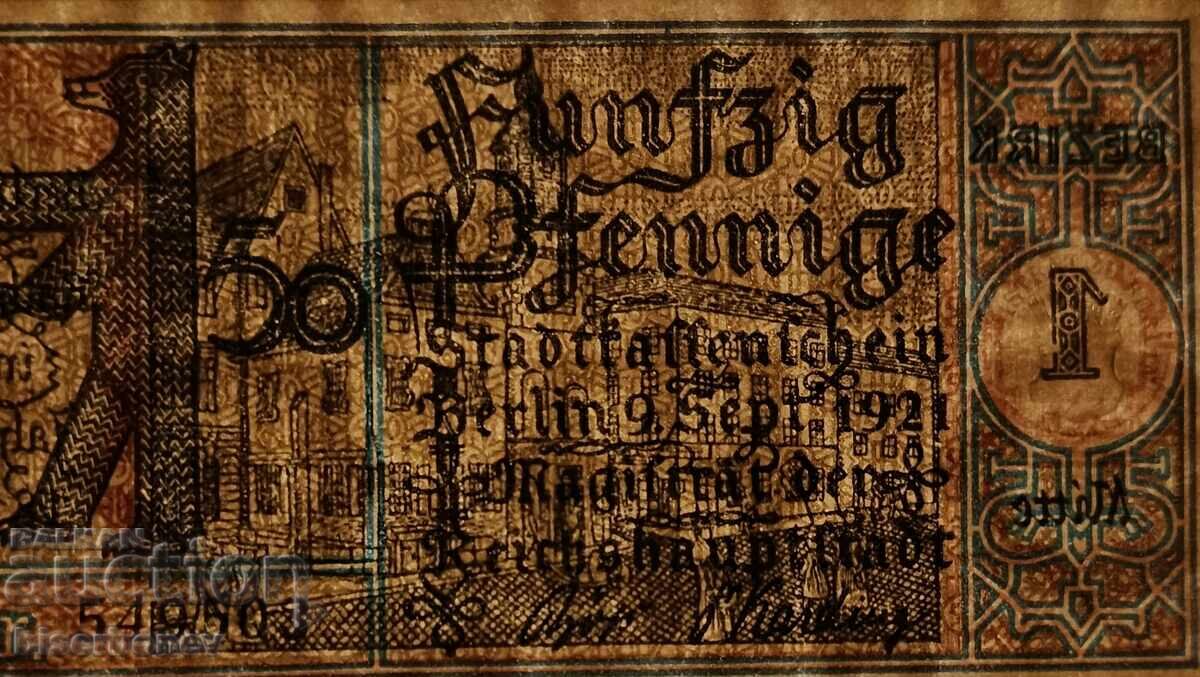 Funfzig
Pfennige
50
Stadtkassenschein
Berlin 9. Sept. 1921
Magistrat der
Reichshauptstadt
BEZIRK
1
Mitte
BALKAN
auction
bjscrudnev